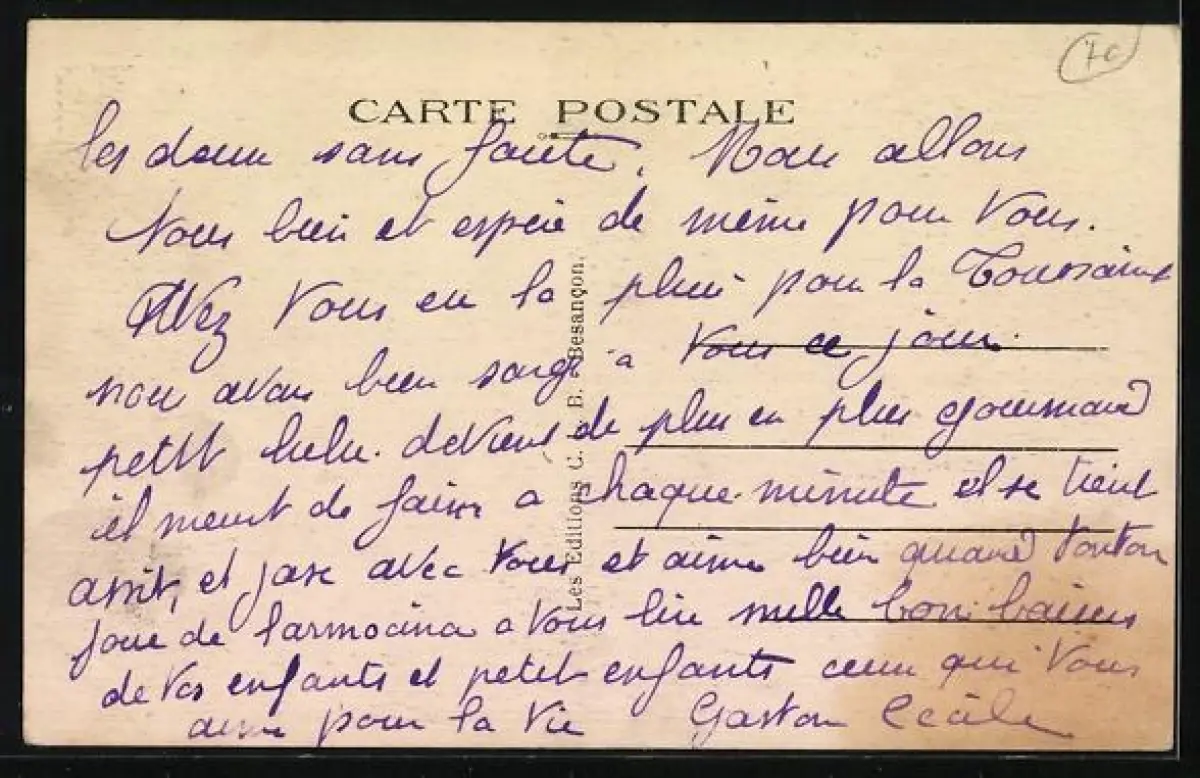 70
CARTE POSTALE
les deux sans faute. Nous allons
tous bien et espère de même pour Vous.
Avez Vous eu la pluie pour la Toussaint
nous avons bien songé a Vous ce jour.
petit lulu devient de plus en plus gourmand
il meurt de faim a chaque minute il se tient
assit, et jase avec Vous et aime bien quand tonton
joue de l'armonica a Vous lire mille bon baisers
de Vos enfants et petit enfants ceux qui Vous
aime pour la Vie Gaston Cécile
Les Editions C. B. Besançon.